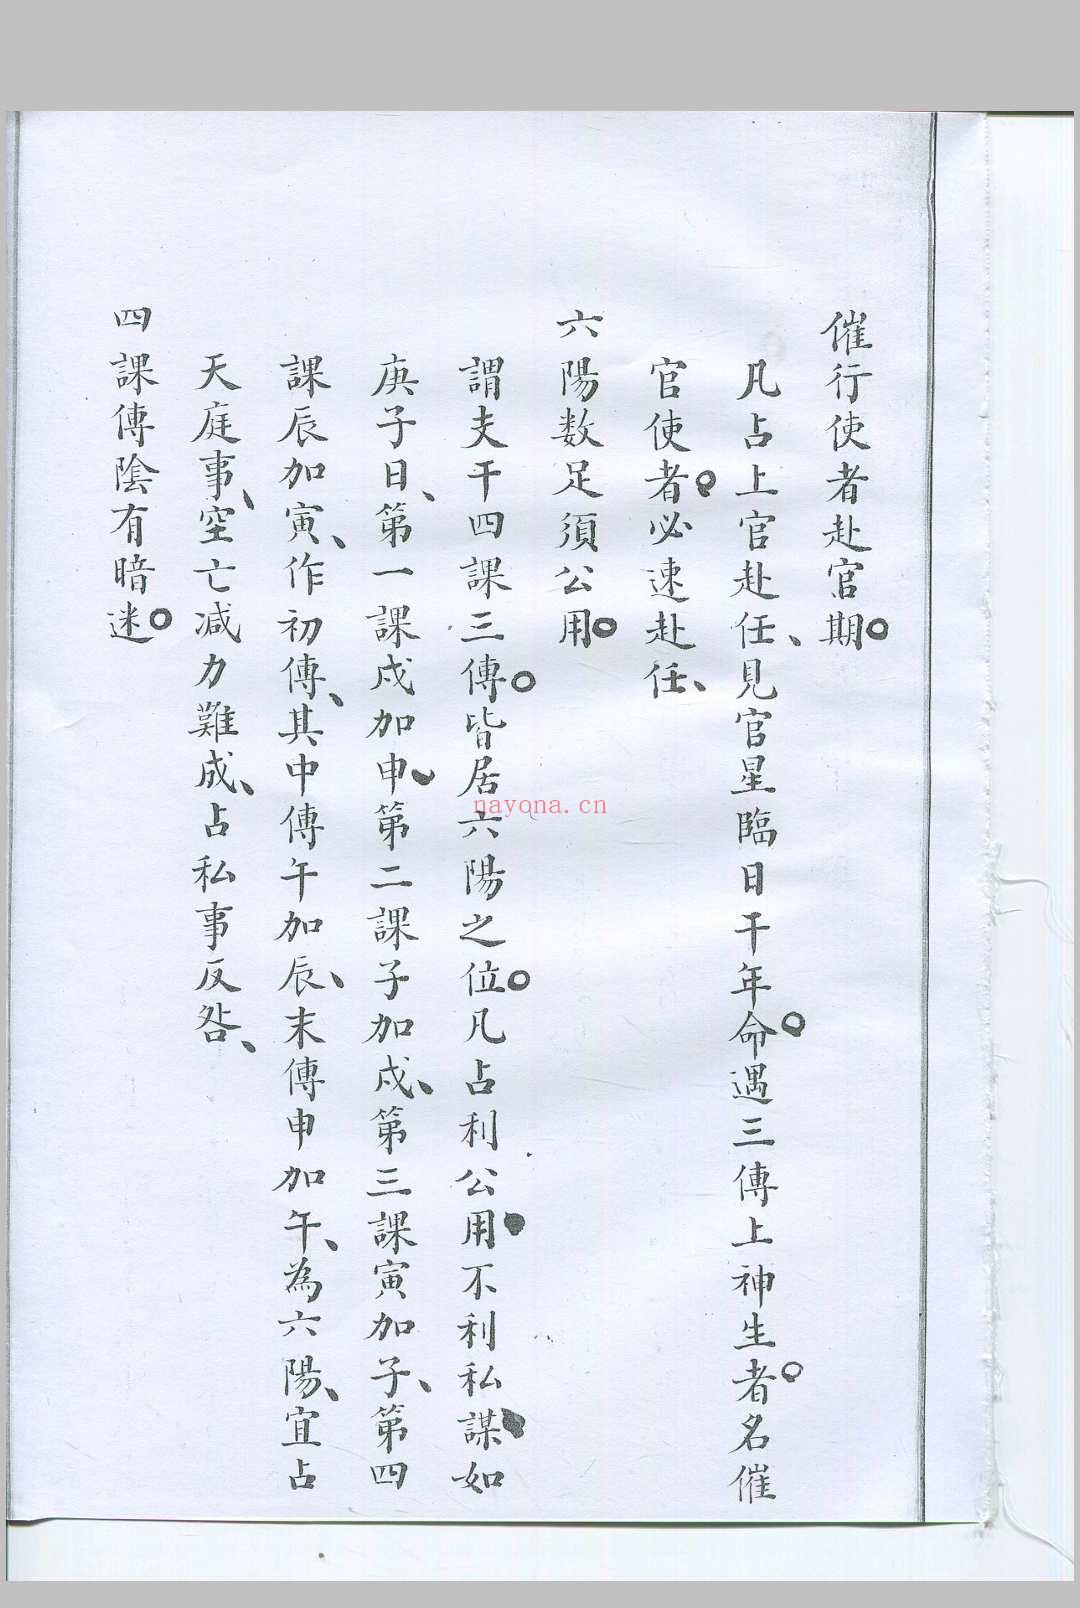 催行使者赴官期。
凡占上官赴任、見官星臨日干年命。遇三傳上神生者。名催
官使者。必速赴任、
六陽数足須公用。
謂支干四課三傳。皆居六陽之位。凡占利公用不利私謀如
庚子日、第一課戌加申、第二課子加戌、第三課寅加子、第四
課辰加寅、作初傳、其中傳午加辰、末傳申加午、為六陽、宜占
天庭事、空亡减力難成、占私事反咎、
四課傳陰有暗迷。
nayona.cn